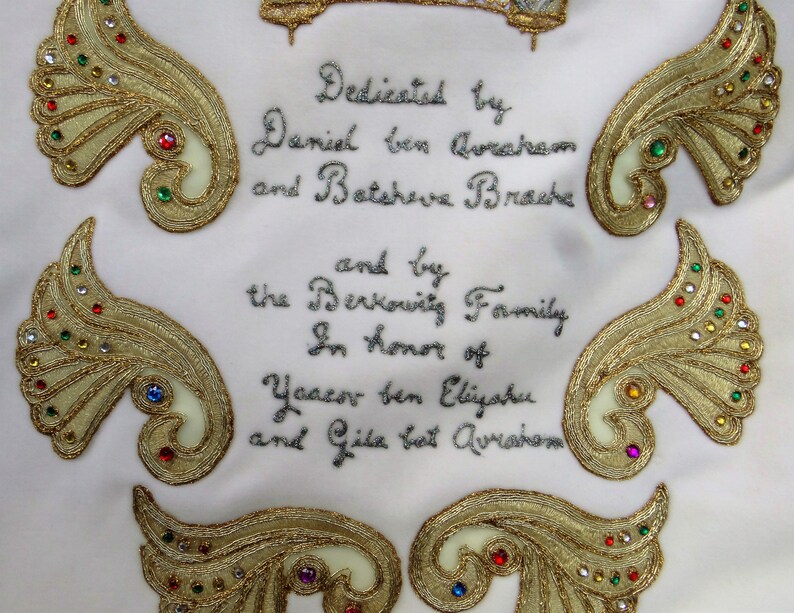 Dedicated by
Daniel ben Avraham
and Batsheva Bracha
and by
the Berkowitz Family
In honor of
Yaacov ben Eliyahu
and Gila bat Avraham